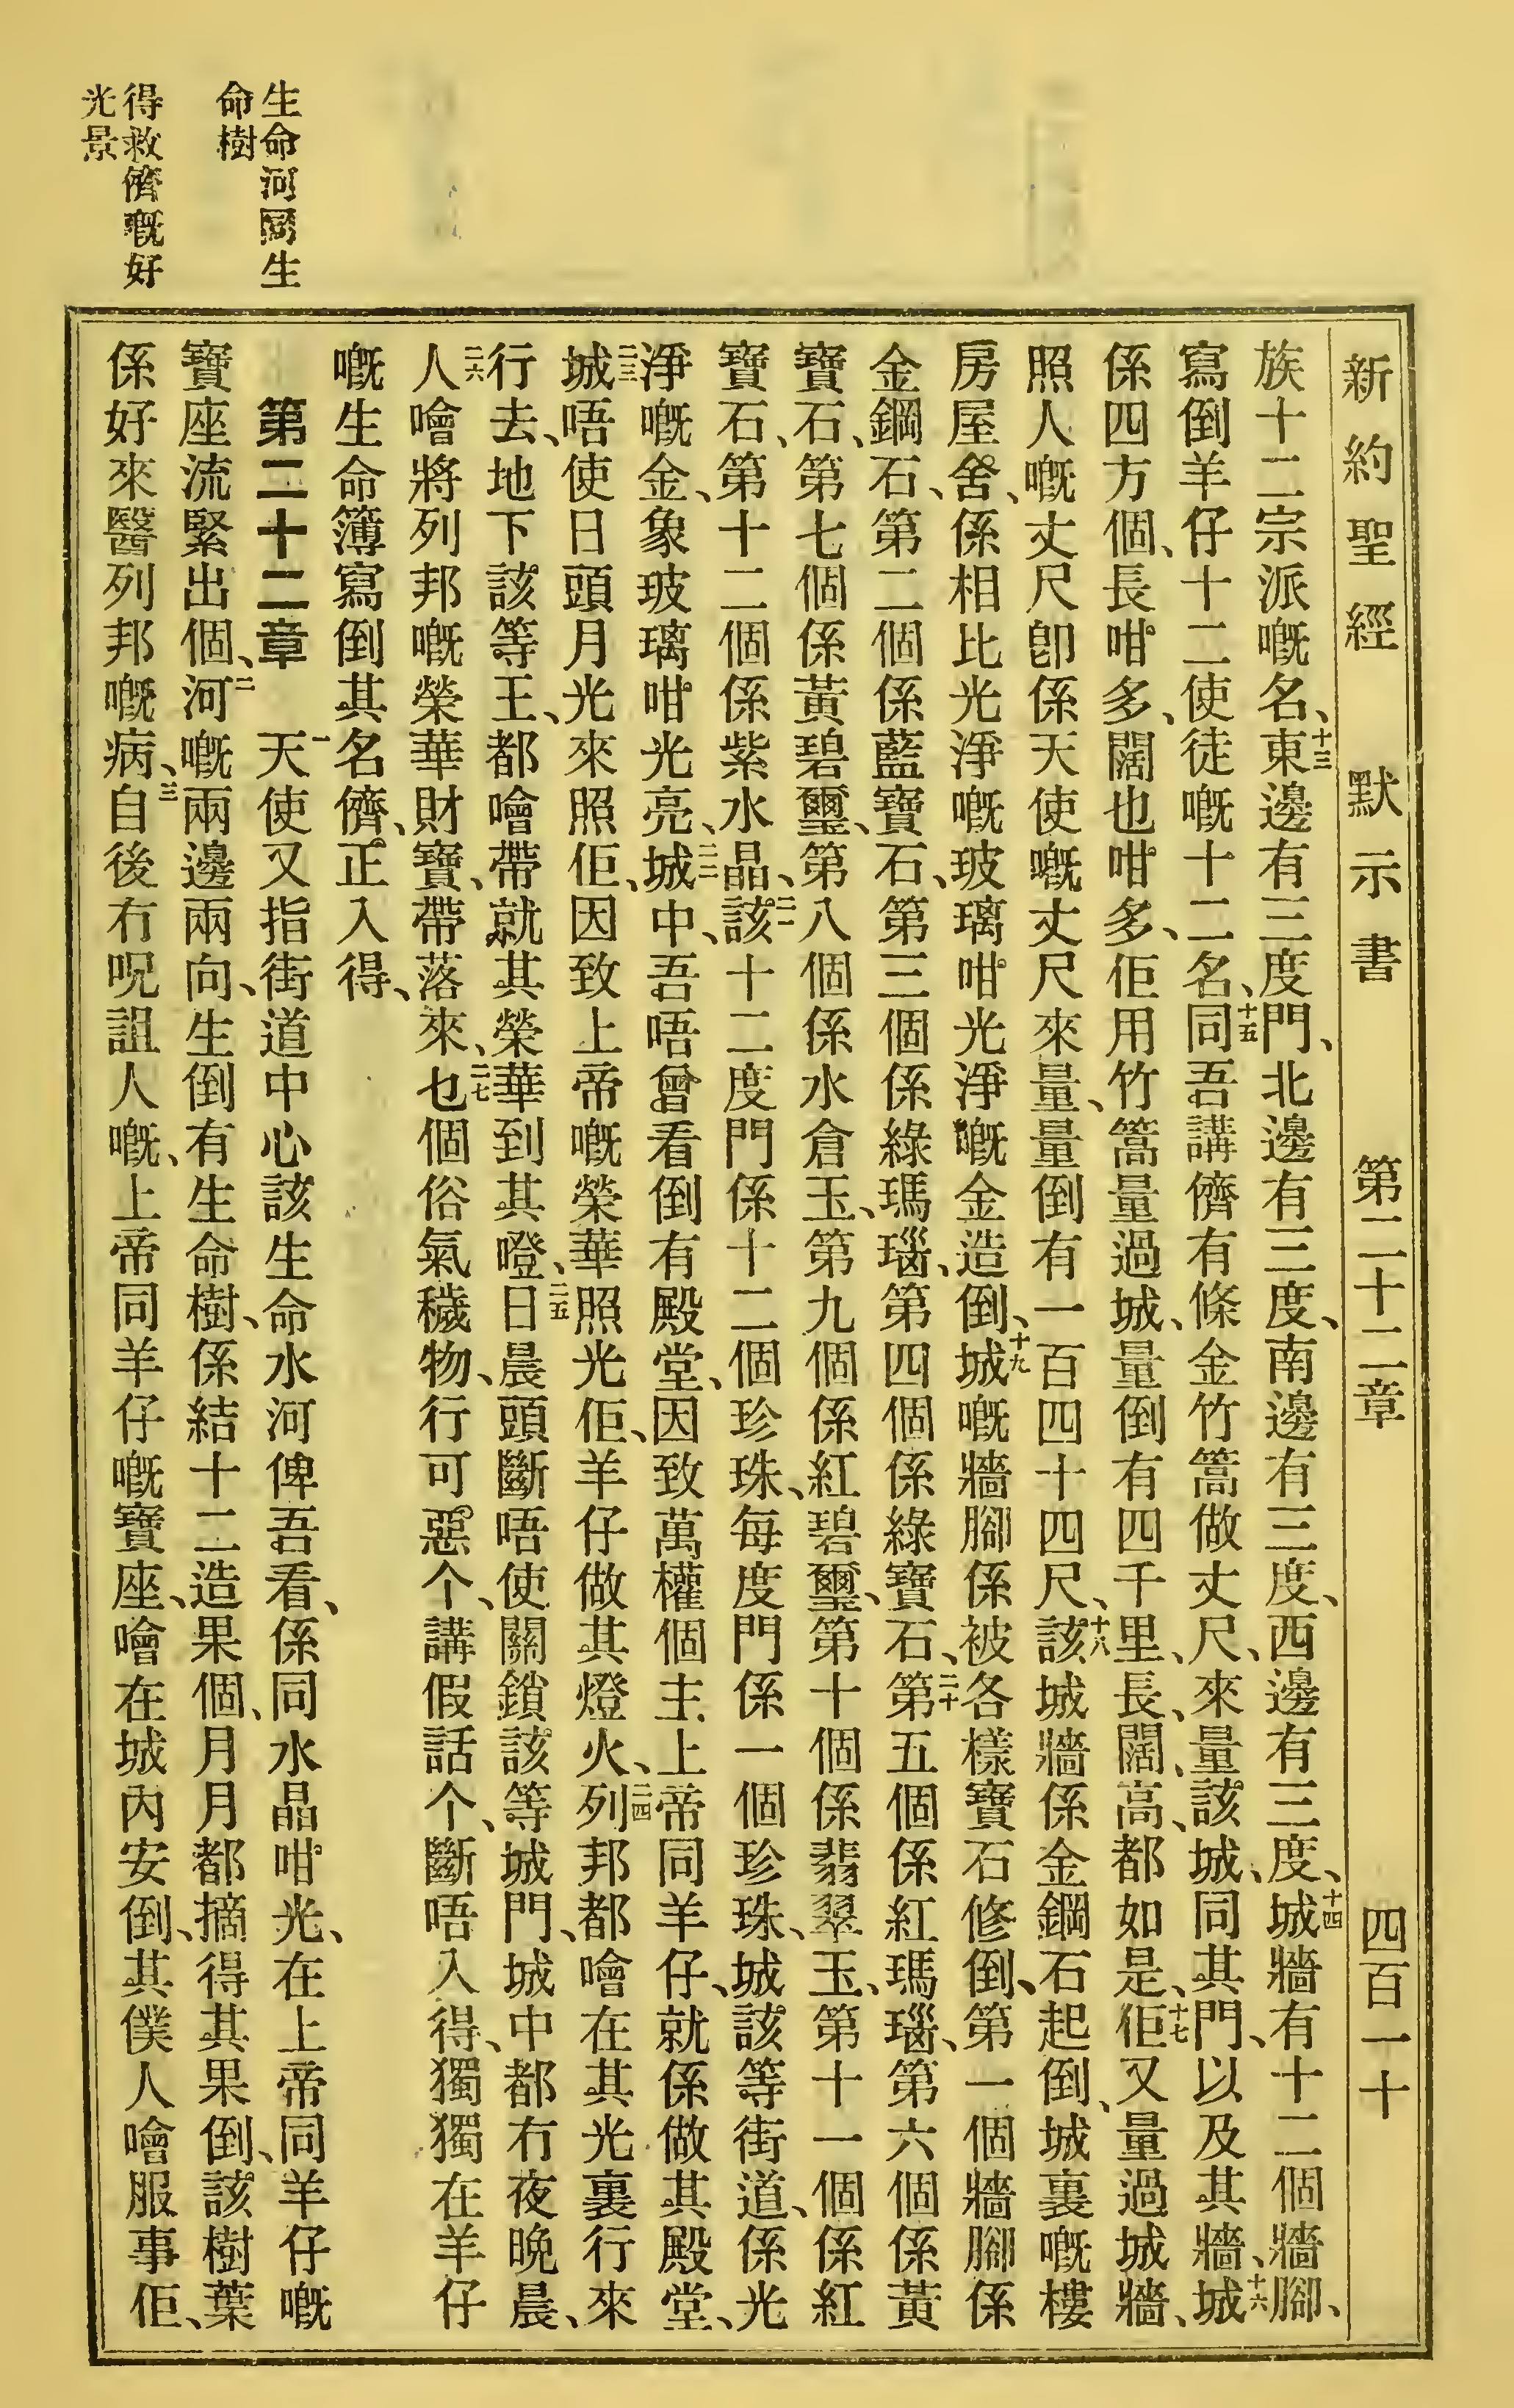 新約聖經 默示書 第二十二章 四百一十
族十二宗派嘅名、十三東邊有三度門、北邊有三度、南邊有三度、西邊有三度、十四城牆有十二個牆腳、
寫倒羊仔十二使徒嘅十二名、十五同吾講儕有條金竹篙做丈尺、來量該城、同其門、以及其牆、十六城
係四方個、長咁多、闊也咁多、佢用竹篙量過城、量倒有四千里、長、闊、高、都如是、十七佢又量過城牆、
照人嘅丈尺卽係天使嘅丈尺來量、量倒有一百四十四尺、十八該城牆係金鋼石起倒、城裏嘅樓
房屋舍、係相比光淨嘅玻璃咁光淨嘅金造倒、十九城嘅牆腳係被各樣寶石修倒、第一個牆腳係
金鋼石、第二個係藍寶石、第三個係綠瑪瑙、第四個係綠寶石、二十第五個係紅瑪瑙、第六個係黃
寶石、第七個係黃碧璽、第八個係水倉玉、第九個係紅碧璽、第十個係翡翠玉、第十一個係紅
寶石、第十二個係紫水晶、二一該十二度門係十二個珍珠、每度門係一個珍珠、城該等街道、係光
淨嘅金、象玻璃咁光亮、二二城中、吾唔曾看倒有殿堂、因致萬權個主上帝同羊仔、就係做其殿堂、
二三城唔使日頭月光來照佢、因致上帝嘅榮華照光佢、羊仔做其燈火、二四列邦都噲在其光裏行來
行去、地下該等王、都噲帶就其榮華到其嶝、二五日晨頭斷唔使關鎖該等城門、城中都冇夜晚晨、
二六人噲將列邦嘅榮華財寶、帶落來、二七乜個俗氣穢物、行可惡个、講假話个、斷唔入得、獨獨在羊仔
嘅生命簿寫倒其名儕、正入得、
第二十二章 一天使又指街道中心該生命水河俾吾看、係同水晶咁光、在上帝同羊仔嘅
寶座流緊出個、二河嘅兩邊兩向、生倒有生命樹、係結十二造果個、月月都摘得其果倒、該樹葉
係好來醫列邦嘅病、三自後冇呪詛人嘅、上帝同羊仔嘅寶座、噲在城內安倒、其僕人噲服事佢、
生命河同生
命樹
得救儕嘅好
光景